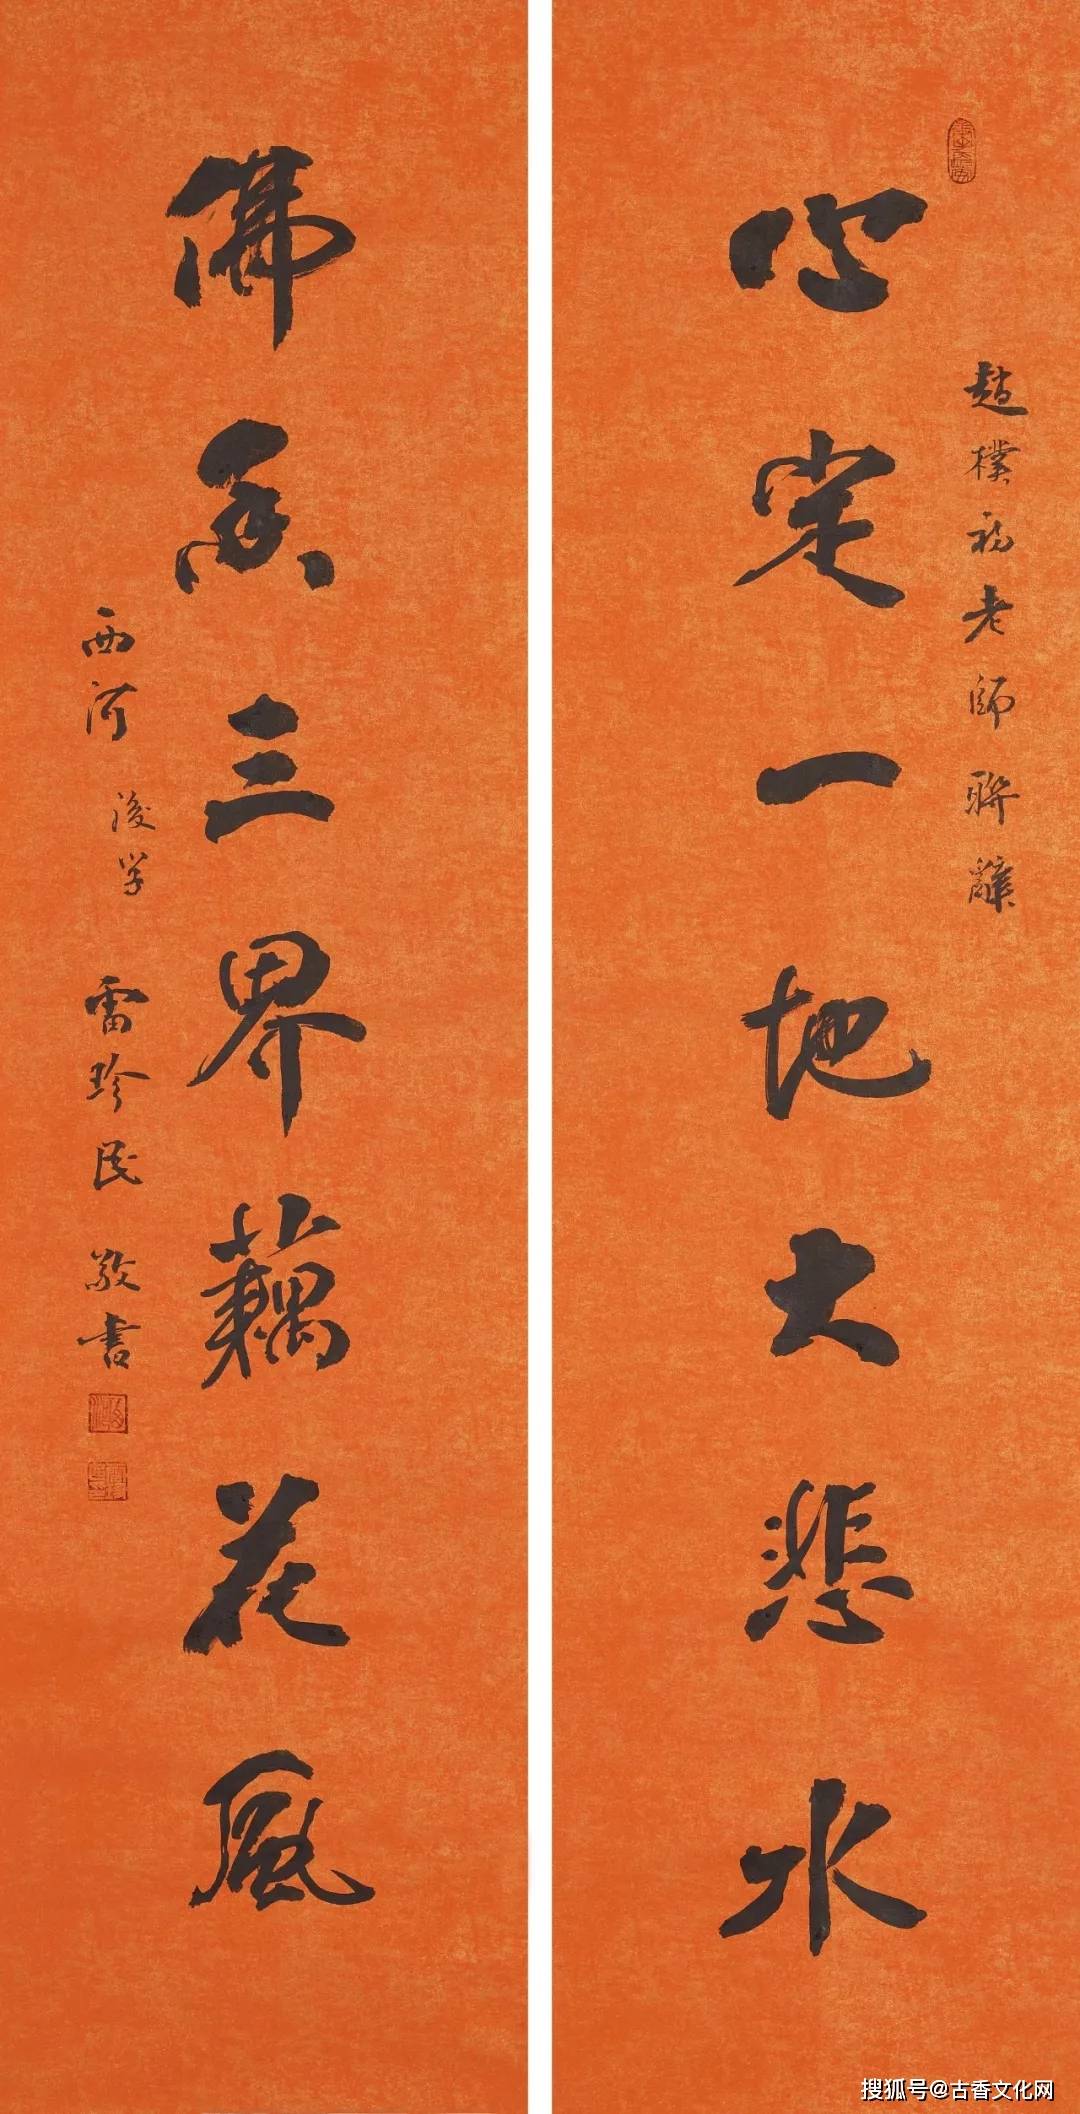 趙樸初老師聯辭
心定一地大悲水
佛香三界藕花風
西河 後学 雷珍民 敬書
搜狐号@古香文化网